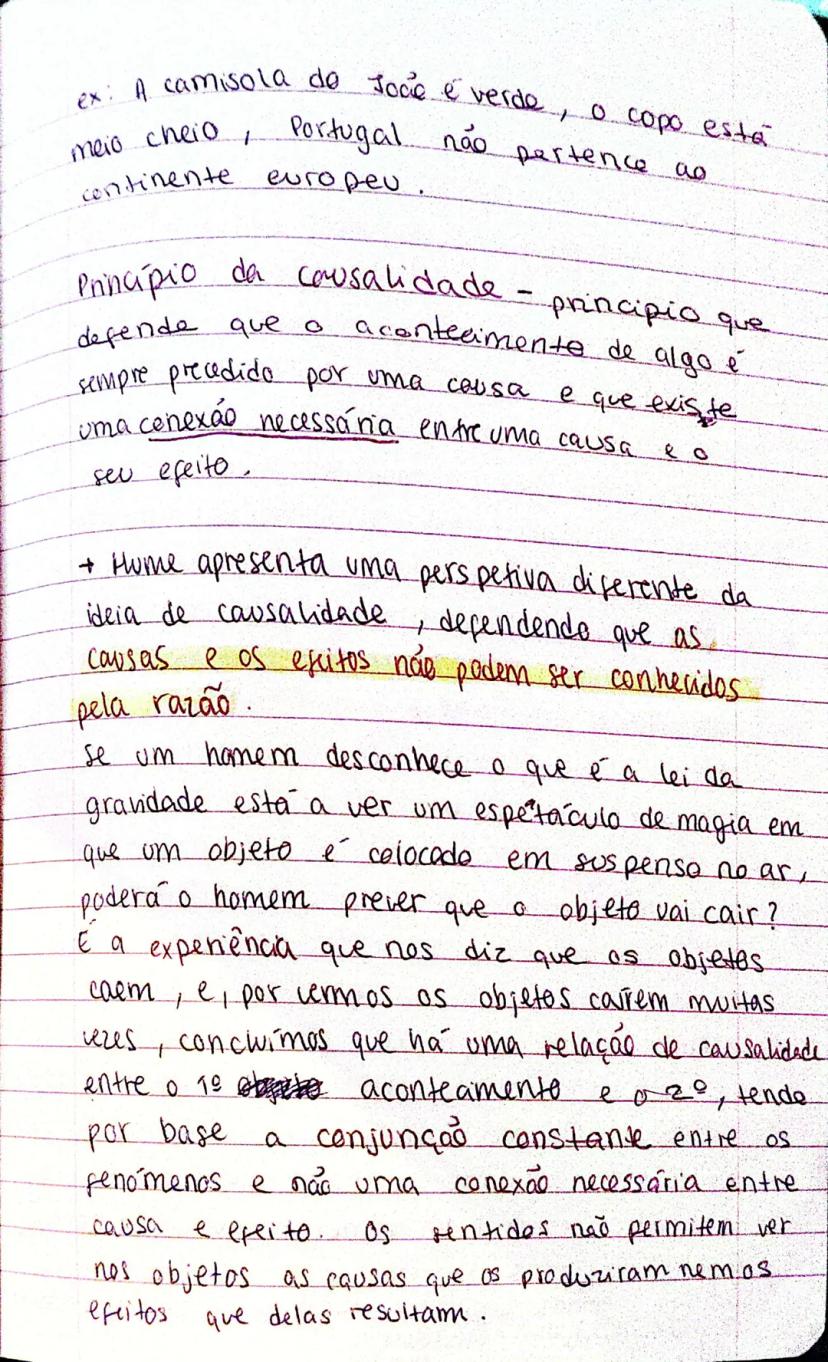 ex: A camisola do João é verde, o copo está
meio cheio, Portugal não pertence ao
continente europeu.
Princípio da causalidade - principio que
defende que o acontecimento de algo é
sempre precedido por uma causa e que existe
uma conexão necessária entre uma causa e o
seu efeito.
→ Hume apresenta uma perspetiva diferente da
ideia de causalidade, defendendo que as
causas e os efeitos não podem ser conhecidos
pela razão.
Se um homem desconhece o que é a lei da
gravidade está a ver um espetáculo de magia em
que um objeto é colocado em suspenso no ar,
poderá o homem prever que o objeto vai cair?
É a experiência que nos diz que os objetos
caem, e, por vermos os objetos caírem muitas
vezes, concluímos que há uma relação de causalidade
entre o 1º acontecimento e o 2º, tendo
por base a conjunção constante entre os
fenómenos e não uma conexão necessária entre
causa e efeito. Os sentidos não permitem ver
nos objetos as causas que os produziram nem os
efeitos que delas resultam.